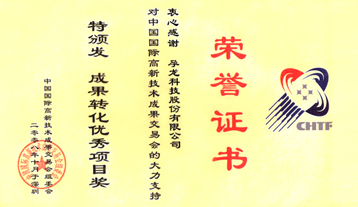 荣誉证书
CHTF
衷心感谢 孚龙科技股份有限公司
对中国国际高新技术成果交易会的大力支持
特颁发 成果转化优秀项目奖
中国国际高新技术成果交易会组委会
二零零八年十月于深圳